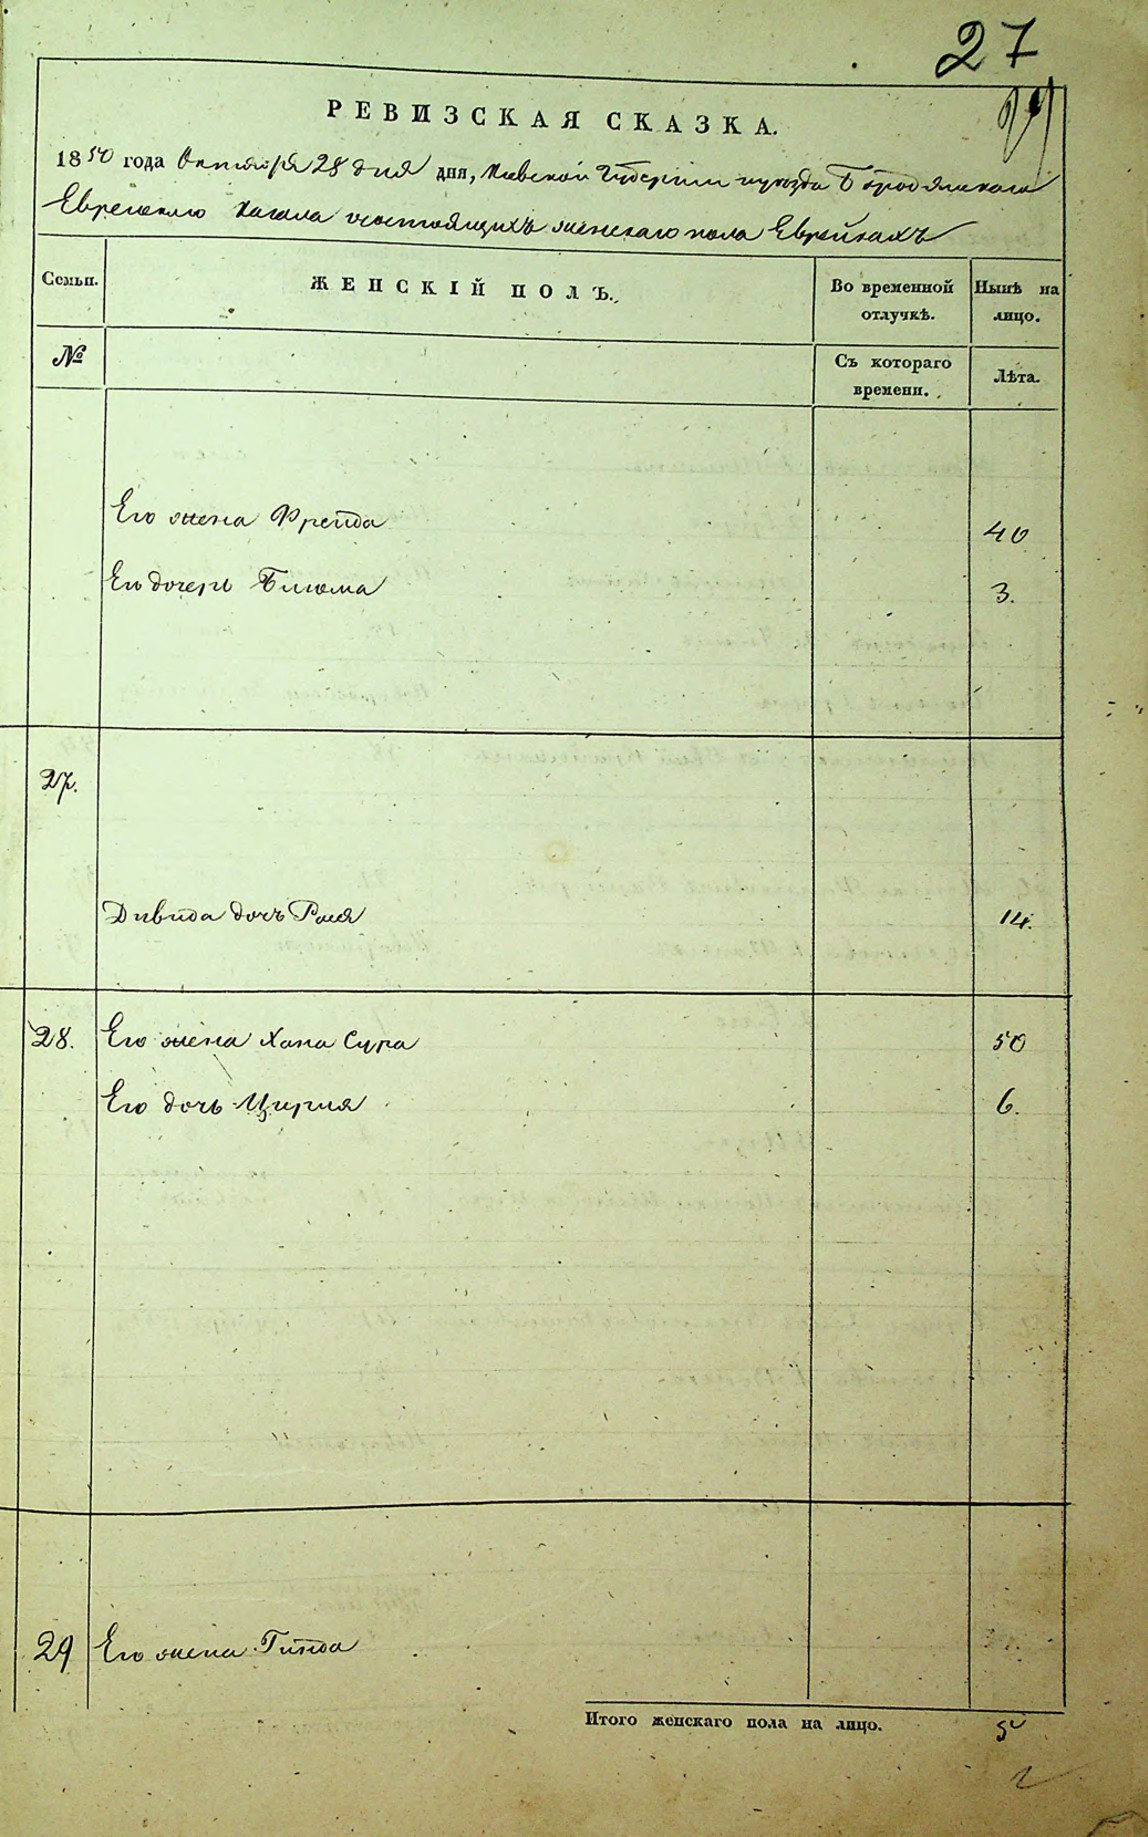 27
РЕВИЗСКАЯ СКАЗКА.
1850 года Октября 28 дня дня, Киевской Губернии и уезда Бородянскаго
Еврейскаго Кагала о состоящихъ женскаго пола Еврейкахъ
Семьи.
ЖЕНСКІЙ ПОЛЪ.
Во временной отлучкѣ.
Нынѣ на лицо.
№
Съ котораго времени.
Лѣта.
Его жена Фрейда 40
Его дочерь Блюма 3.
27.
Давида дочь Рася 14.
28. Его жена Хана Сура 50
Его дочь Цирля 6.
29 Его жена Гинда
Итого женскаго пола на лицо. 5